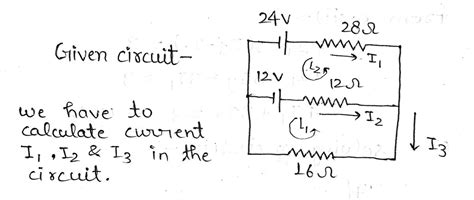 Given circuit-
we have to
calculate current
I1, I2 & I3 in the
circuit.
24V
28Ω
I1
L2
12V
12Ω
I2
L1
I3
16Ω